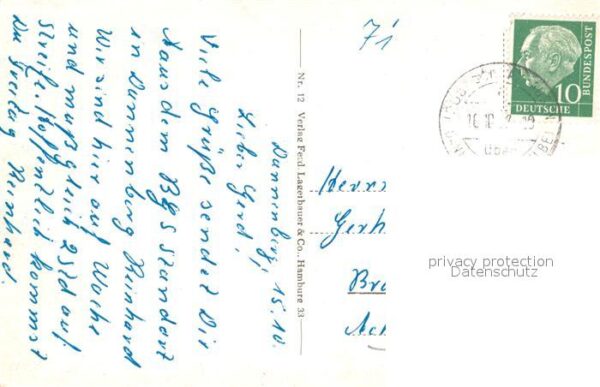 Dannenberg, 15.10.
Lieber Gerd,
Viele Grüße sendet Dir
aus dem BGS Standort
in Dannenberg Reinhard
Wir sind hier auf Wache
und muß gleich 2 Std auf
Streife. Hoffentlich kommst
Du Freitag Reinhard.
Nr. 12 Verlag Ferd. Lagerbauer & Co., Hamburg 33
71
DEUTSCHE
BUNDESPOST
10
Herrn
Gerh
Br
privacy protection
Datenschutz